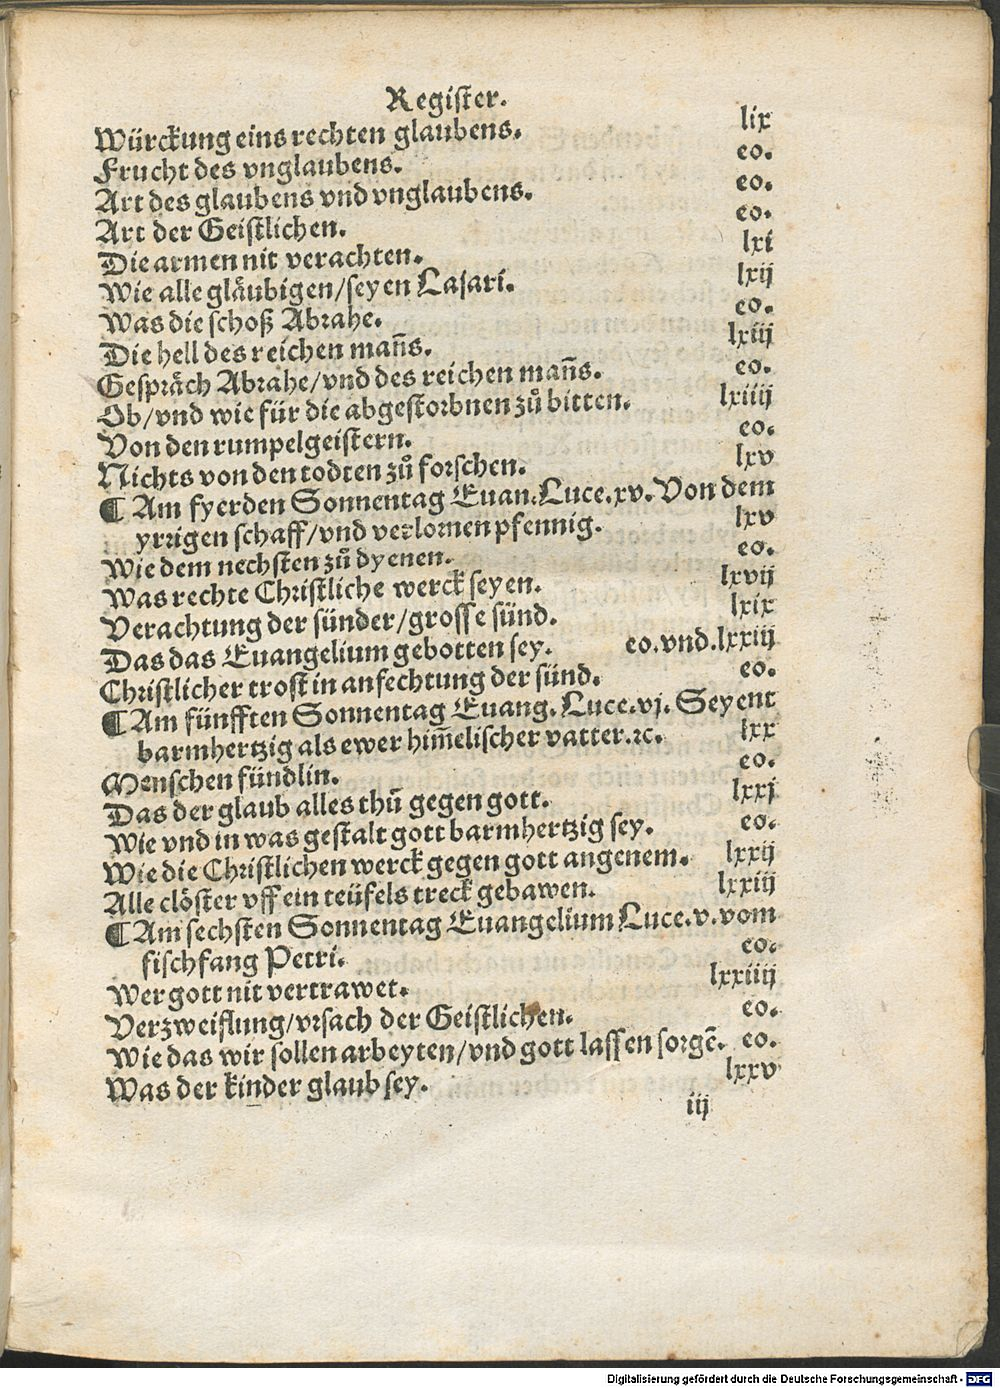 Register.
Würckung eins rechten glaubens. lix
Frucht des vnglaubens. eo.
Art des glaubens vnd vnglaubens. eo.
Art der Geistlichen. eo.
Die armen nit verachten. lxi
Wie alle gläubigen/seyen Lasari. lxij
Was die schoß Abrahe. eo.
Die hell des reichen mañs. lxiij
Gespräch Abrahe/vnd des reichen mañs. eo.
Ob/vnd wie für die abgestorbnen zů bitten. lxiiij
Von den rumpelgeistern. eo.
Nichts von den todten zů forschen. lxv
¶ Am fyerden Sonnentag Euan. Luce.xv. Von dem
yrrigen schaff/vnd verlornen pfennig. lxv
Wie dem nechsten zů dyenen. eo.
Was rechte Christliche werck seyen. lxvij
Verachtung der sünder/grosse sünd. lxix
Das das Euangelium gebotten sey. eo.vnd.lxxiij
Christlicher trost in anfechtung der sünd. eo.
¶ Am fünfften Sonnentag Euang. Luce.vj. Seyent
barmhertzig als ewer him̃elischer vatter.ꝛc. lxx
Menschen fündlin. eo.
Das der glaub alles thů gegen gott. lxxj
Wie vnd in was gestalt gott barmhertzig sey. eo.
Wie die Christlichen werck gegen gott angenem. lxxij
Alle clöster vff ein teüfels treck gebawen. lxxiij
¶ Am sechsten Sonnentag Euangelium Luce.v. vom
fischfang Petri. eo.
Wer gott nit vertrawet. lxxiiij
Verzweiflung/vrsach der Geistlichen. eo.
Wie das wir sollen arbeyten/vnd gott lassen sorgẽ. eo.
Was der kinder glaub sey. lxxv
iij
Digitalisierung gefördert durch die Deutsche Forschungsgemeinschaft - DFG